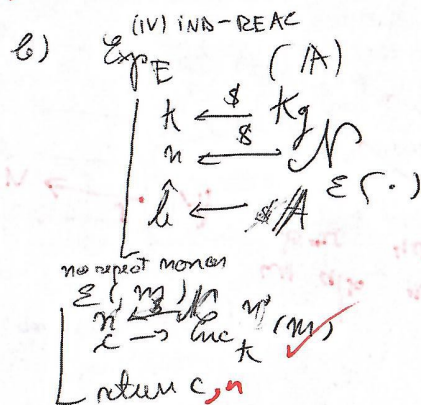 (IV) IND-REAC
b) Exp_E (A)
k ←$ Kg
n ←$ N
b̂ ← A^{E(·)}
no repeat nonces
E(m)
n ←$ N
c → Enc_k^n (m)
return c, n